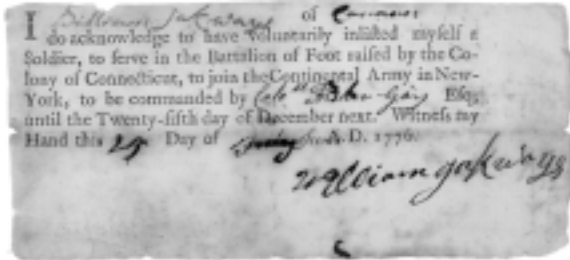 I William Jakways of Canaan
do acknowledge to have voluntarily inlisted myself a
Soldier, to serve in the Battalion of Foot raised by the Co-
lony of Connecticut, to join the Continental Army in New-
York, to be commanded by Gay Esq;
until the Twenty-fifth day of December next. Witness my
Hand this Day of A.D. 1776.
William Jakways